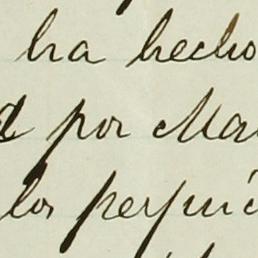 ha hecho
por Ma
los perjuic